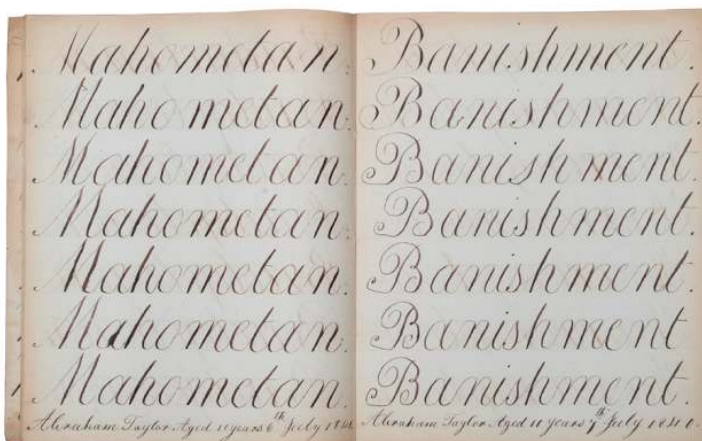 Mahometan.
Mahometan.
Mahometan.
Mahometan.
Mahometan.
Mahometan.
Mahometan.
Abraham Taylor Aged 11 years 6th July
Banishment.
Banishment.
Banishment.
Banishment.
Banishment.
Banishment
Banishment.
Abraham Taylor Aged 11 years 7th July 1840.